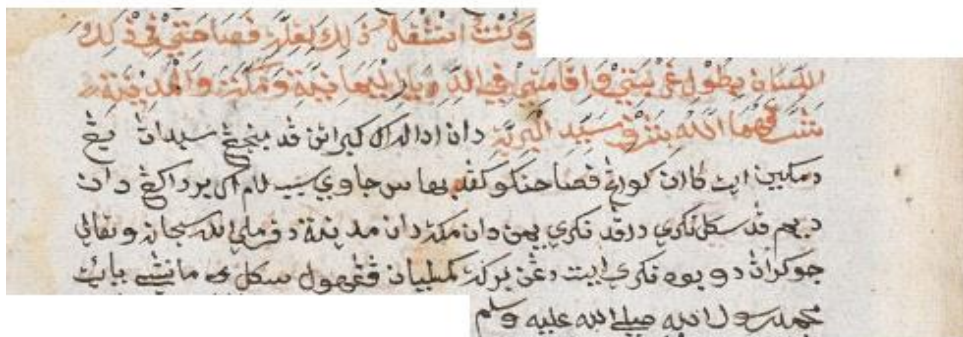 وَكُنْتُ اسْتَثْقِلُ ذَلِكَ لِقِلَّةِ فَصَاحَتِيْ فِيْ ذَلِكَ
اللِّسَانِ بِطُوْلِ غُرْبَتِيْ وَاِقَامَتِيْ فِي الدِّيَارِ الْيَمَانِيَّةِ وَمَكَّةَ وَالْمَدِيْنَةِ
شَرَّفَهُمَا اللّٰهُ بِشَرَفِ سَيِّدِ الْبَرِيَّةِ دان اداله اك كبراتن فد منجنجڠ سبداڽ يڠ
دمكين ايت كارن كورڠ فصاحتكو كفد بهاس جاوي سبب لام اك بردڬڠ دان
ديم فد سكل نكري درفد نكري يمن دان مكة دان مدينة دملي الله سبحانه وتعالى
جوكران دو بوه نكري ايت دڠن بركة كمليان فڠهول سكلين مانسي يايت
محمد رسول الله صلى الله عليه وسلم